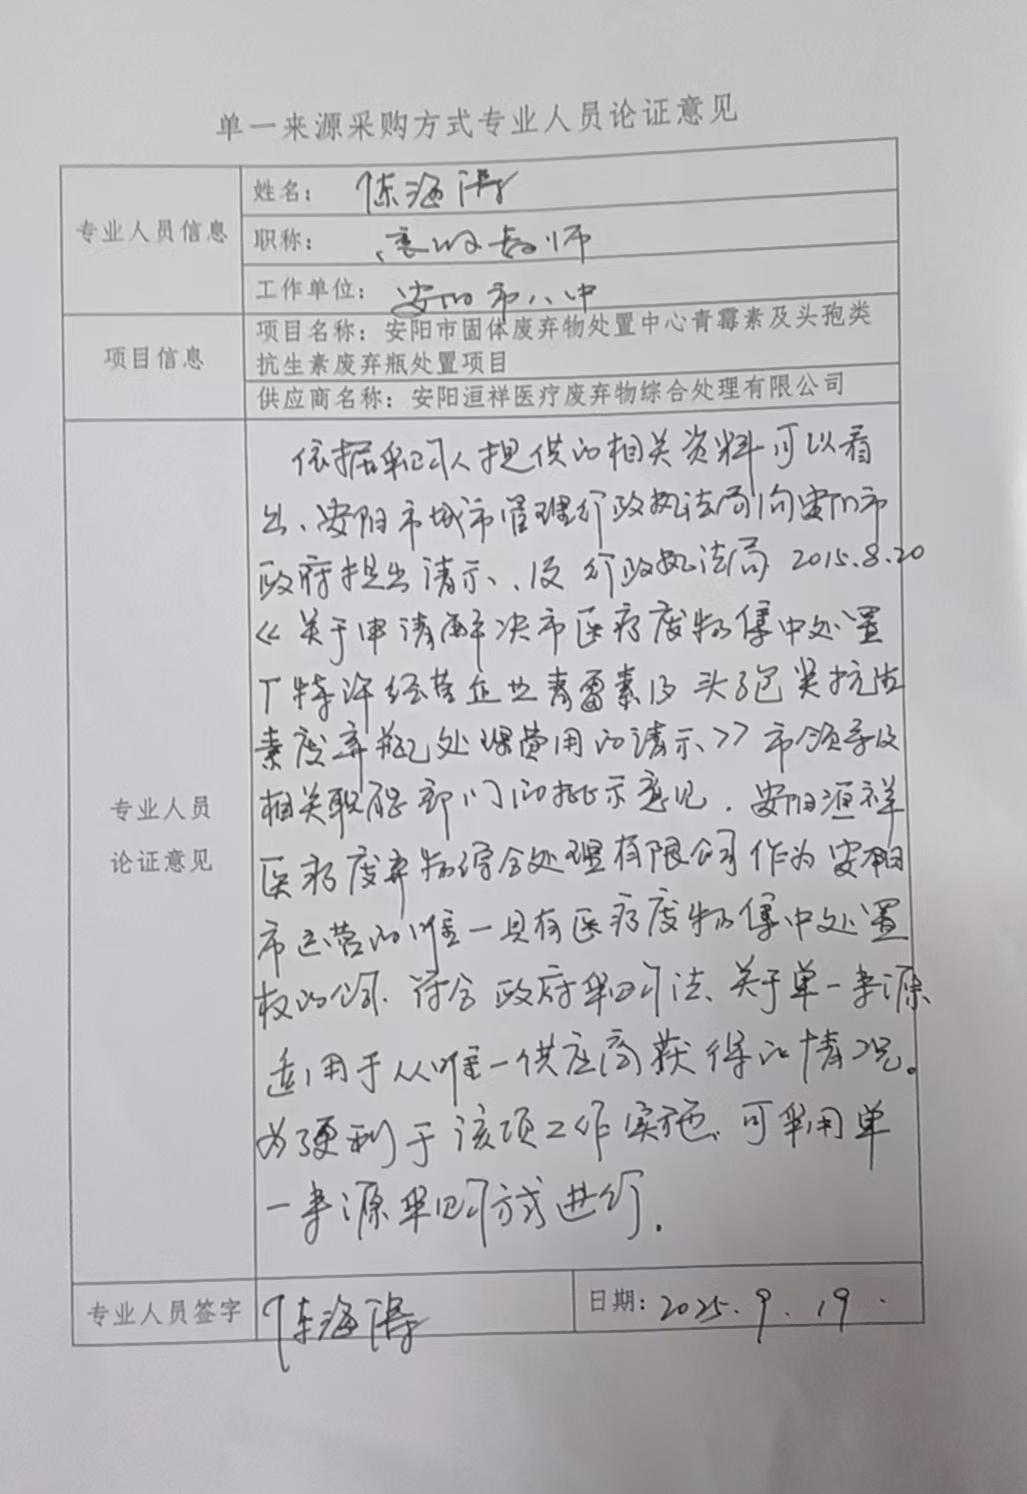 单一来源采购方式专业人员论证意见
专业人员信息
姓名：陈海涛
职称：高级教师
工作单位：安阳市八中
项目信息
项目名称：安阳市固体废弃物处置中心青霉素及头孢类
抗生素废弃瓶处置项目
供应商名称：安阳洹祥医疗废弃物综合处理有限公司
专业人员
论证意见
依据采购人提供的相关资料可以看
出、安阳市城市管理行政执法局向安阳市
政府提出请示、及行政执法局2015.8.20
《关于申请解决市医疗废物集中处置
厂特许经营企业青霉素及头孢类抗生
素废弃瓶处理费用的请示》市领导及
相关职能部门的批示意见．安阳洹祥
医疗废弃物综合处理有限公司作为安阳
市运营的唯一具有医疗废物集中处置
权的公司．符合政府采购法、关于单一来源
适用于从唯一供应商获得的情况。
为便利于该项工作实施、可采用单
一来源采购方式进行．
专业人员签字
陈海涛
日期：2025.9.19.